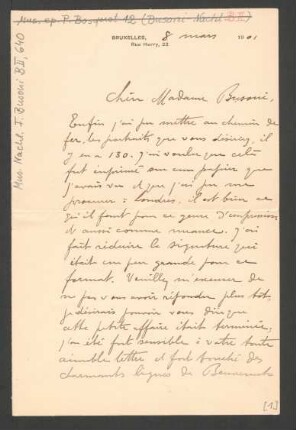 Mus. ep. P. Bosquet 12 (Busoni-Nachl. B II)
Mus. Nachl. F. Busoni B II, 640
BRUXELLES, 8 mars 1901
Rue Henry, 23
Chère Madame Busoni,
Enfin j'ai pu mettre au chemin de
fer, les portraits que vous désirez, il
y en a 180. J'ai voulu que cela
fut imprimé sur un papier que
j'avais vu et que j'ai pu me
procurer à Londres. Il est bien ce
qu'il faut pour ce genre d'impression
et aussi comme nuance. J'ai
fait réduire la signature qui
était un peu grande pour ce
format. Veuillez m'excuser de
ne pas vous avoir répondu plus tôt,
je désirais pouvoir vous dire que
cette petite affaire était terminée,
j'ai été fort sensible à votre toute
aimable lettre et fort touché des
charmantes lignes de
[1]